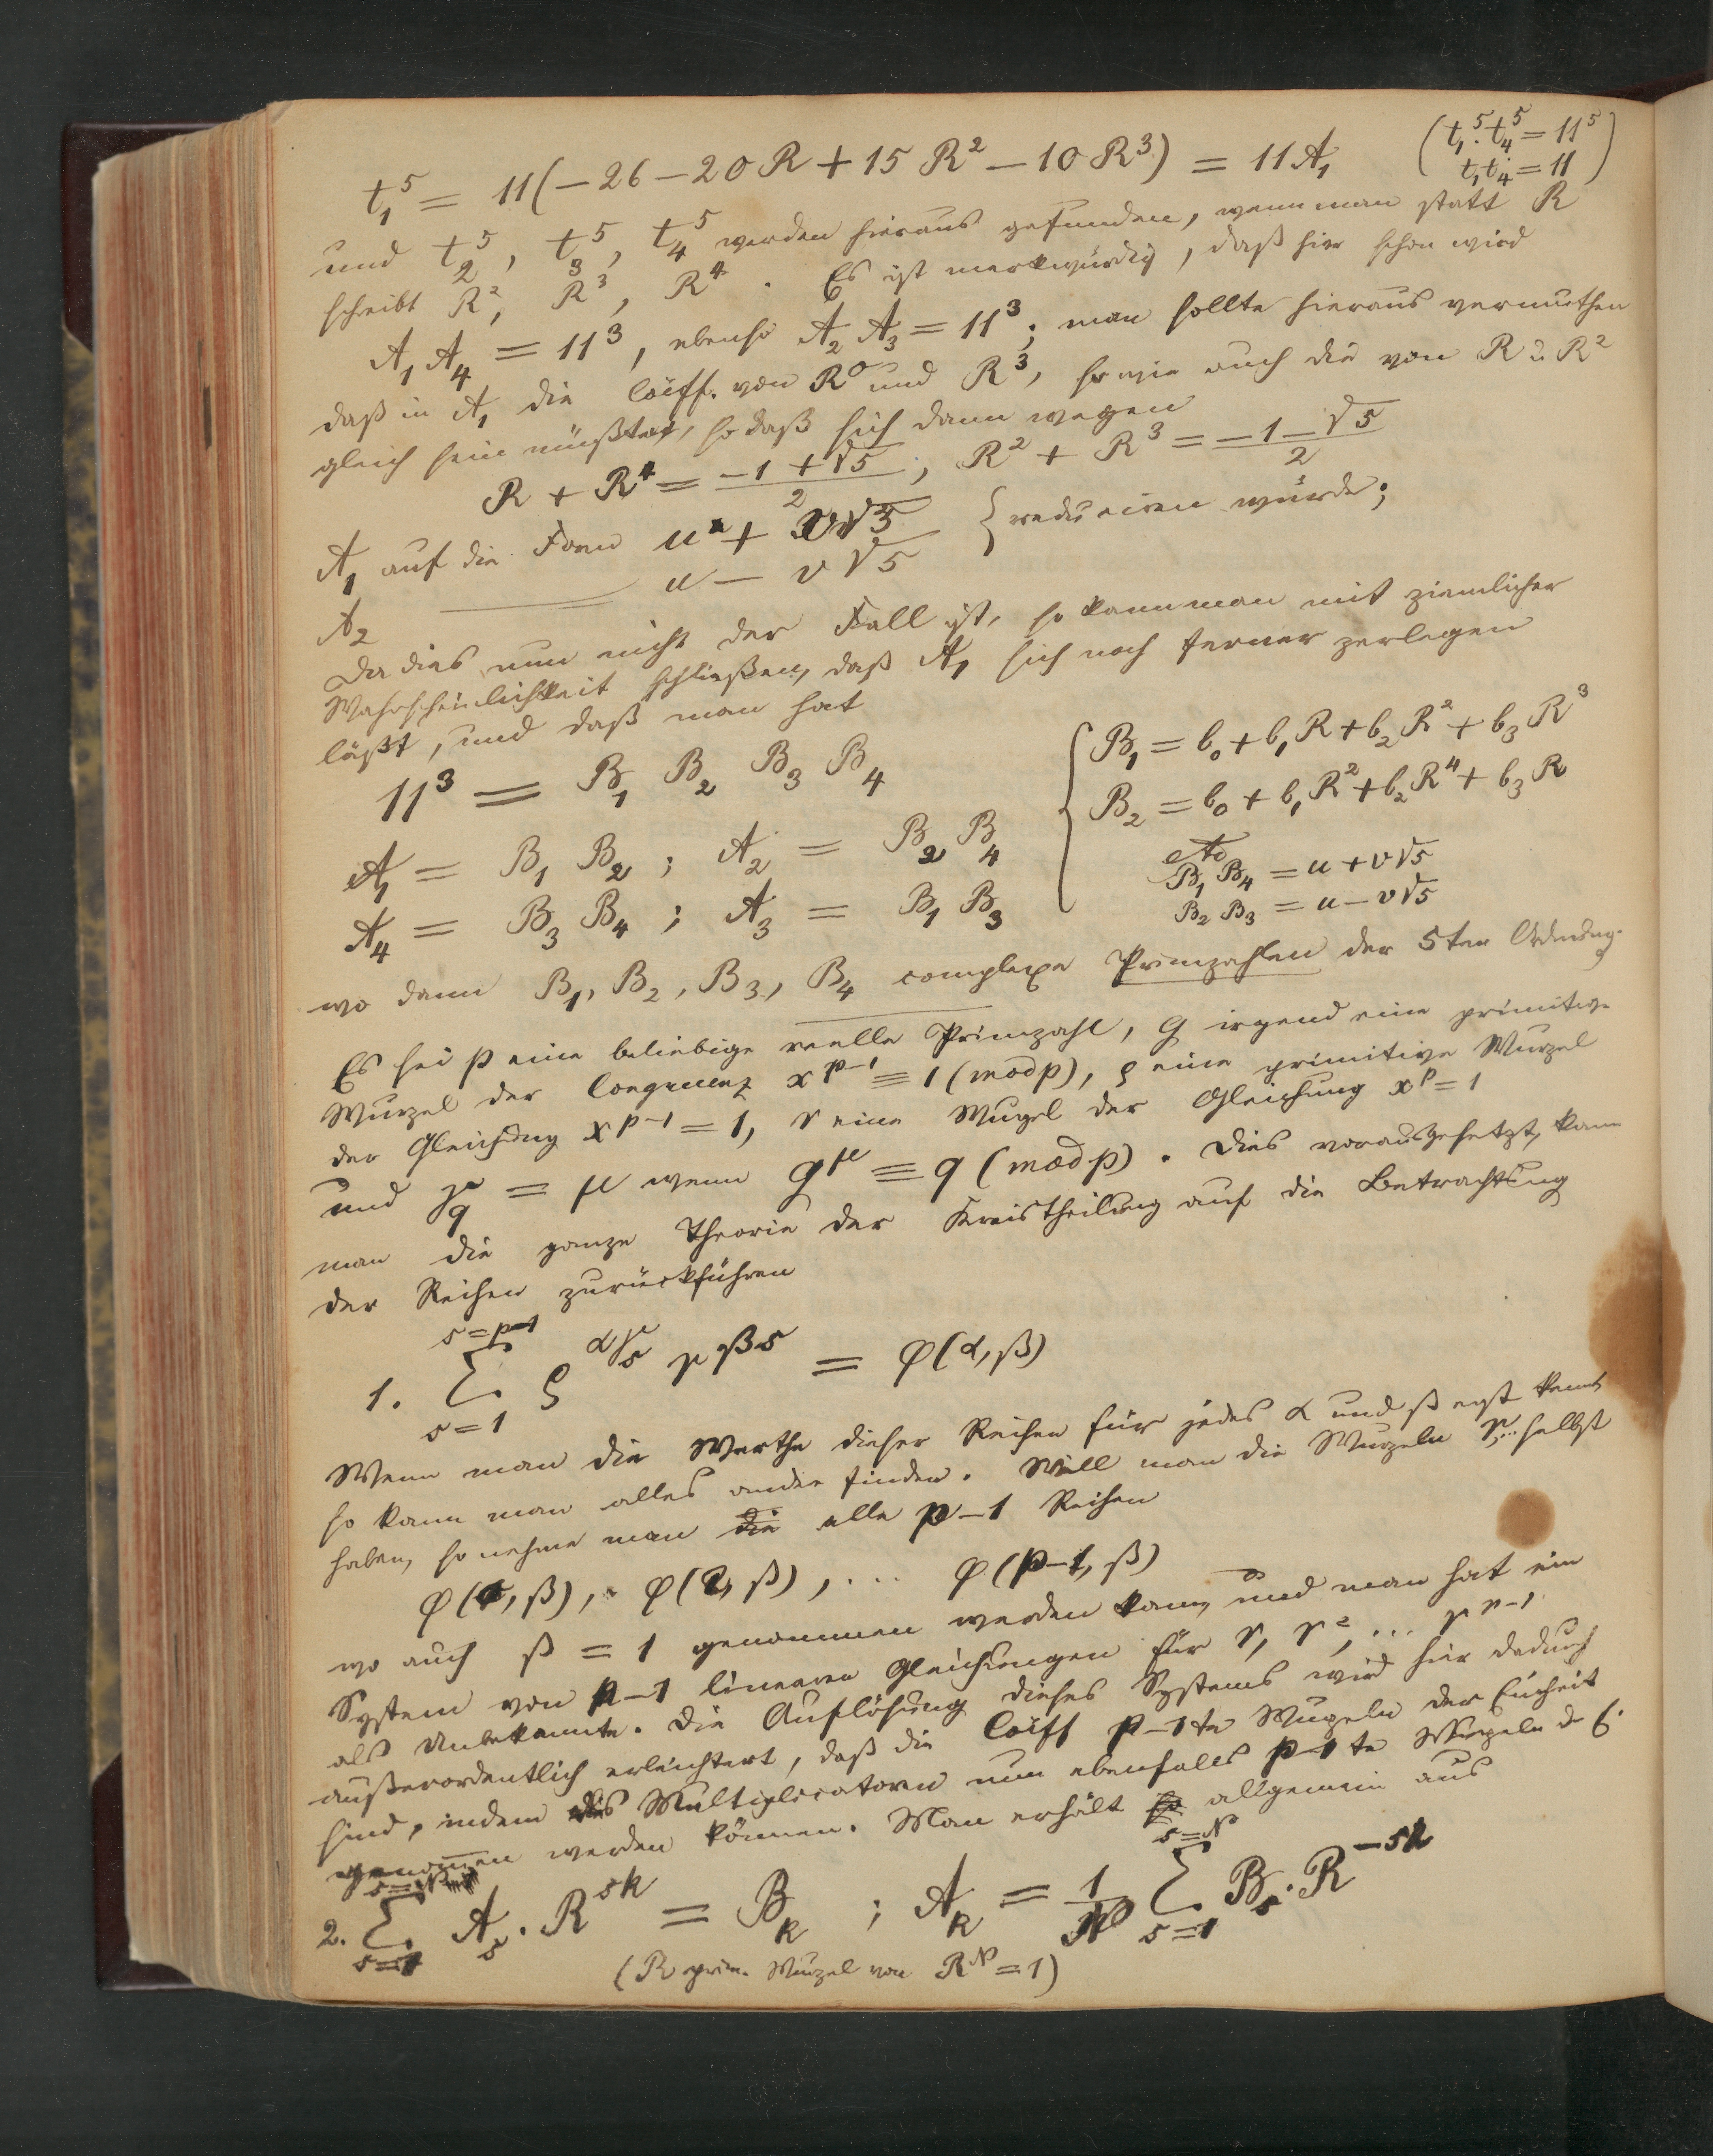 t₁⁵ = 11(−26 − 20R + 15R² − 10R³) = 11A₁ (t₁⁵.t₄⁵ = 11⁵
t₁t₄ = 11)
und t₂⁵, t₃⁵, t₄⁵ werden hieraus gefunden, wenn man statt R
schreibt R², R³, R⁴. Es ist merkwürdig, daß hier schon wird
A₁A₄ = 11³, ebenso A₂A₃ = 11³; man sollte hieraus vermuthen
daß in A₁ die Coeff. von R⁰ und R³, so wie auch die von R u. R²
gleich sein müßten, so daß sich dann wegen
R + R⁴ = (−1 + √5)/2, R² + R³ = (−1 − √5)/2
A₁ auf die Form u + v√5 } reduciren würde;
A₂ ——— u − v√5
Da dies nun nicht der Fall ist, so kann man mit ziemlicher
Wahrscheinlichkeit schließen, daß A₁ sich noch ferner zerlegen
läßt, und daß man hat
11³ = B₁ B₂ B₃ B₄ { B₁ = b₀ + b₁R + b₂R² + b₃R³
B₂ = b₀ + b₁R² + b₂R⁴ + b₃R
A₁ = B₁ B₂ ; A₂ = B₂ B₄ etc
B₁ B₄ = u + v√5
A₄ = B₃ B₄ ; A₃ = B₁ B₃ B₂ B₃ = u − v√5
wo dann B₁, B₂, B₃, B₄ complexe Primzahlen der 5ten Ordnung.
Es sei p eine beliebige reelle Primzahl, g irgend eine primitive
Wurzel der Congruenz x^{p−1} ≡ 1 (mod p), ρ eine primitive Wurzel
der Gleichung x^{p−1} = 1, r eine Wurzel der Gleichung x^p = 1
und γ_q = μ wenn g^μ ≡ q (mod p). Dies vorausgesetzt, kann
man die ganze Theorie der Kreistheilung auf die Betrachtung
der Reihen zurückführen
1. Σ_{s=1}^{s=p−1} ρ^{αγ_s} r^{βs} = φ(α, β)
Wenn man die Werthe dieser Reihen für jedes α und β erst kennt
so kann man alles andre finden. Will man die Wurzeln r,... selbst
haben, so nehme man die alle p−1 Reihen
φ(1, β), φ(2, β), ... φ(p−1, β)
wo auch β = 1 genommen werden kann, und man hat ein
System von p−1 linearen Gleichungen für r, r², ... r^{p−1}
als Unbekannte. Die Auflösung dieses Systems wird hier dadurch
außerordentlich erleichtert, daß die Coeff p−1te Wurzeln der Einheit
sind, indem als Multiplicatoren nun ebenfalls p−1te Wurzeln d. E.
genommen werden können. Man erhält allgemein aus
2. Σ_{s=1}^{s=N} A_s . R^{sk} = B_k ; A_k = 1/N Σ_{s=1}^{s=N} B_s . R^{−sk}
(R prim. Wurzel von R^N = 1)